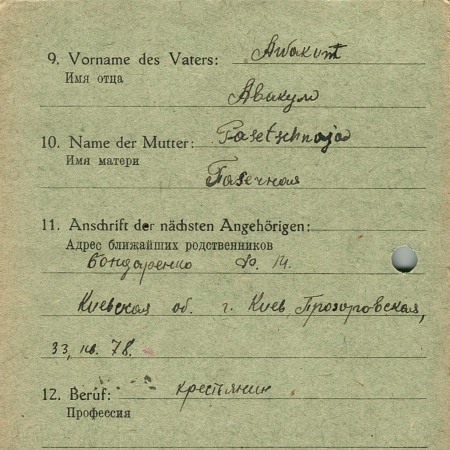 9. Vorname des Vaters: Awakum
Имя отца
Авакум
10. Name der Mutter: Pasetschnaja
Имя матери
Пасечная
11. Anschrift der nächsten Angehörigen:
Адрес ближайших родственников
Бондаренко Ф. М.
Киевская об. г. Киев, Прозоровская,
33, кв. 78.
12. Beruf: крестьянин
Профессия